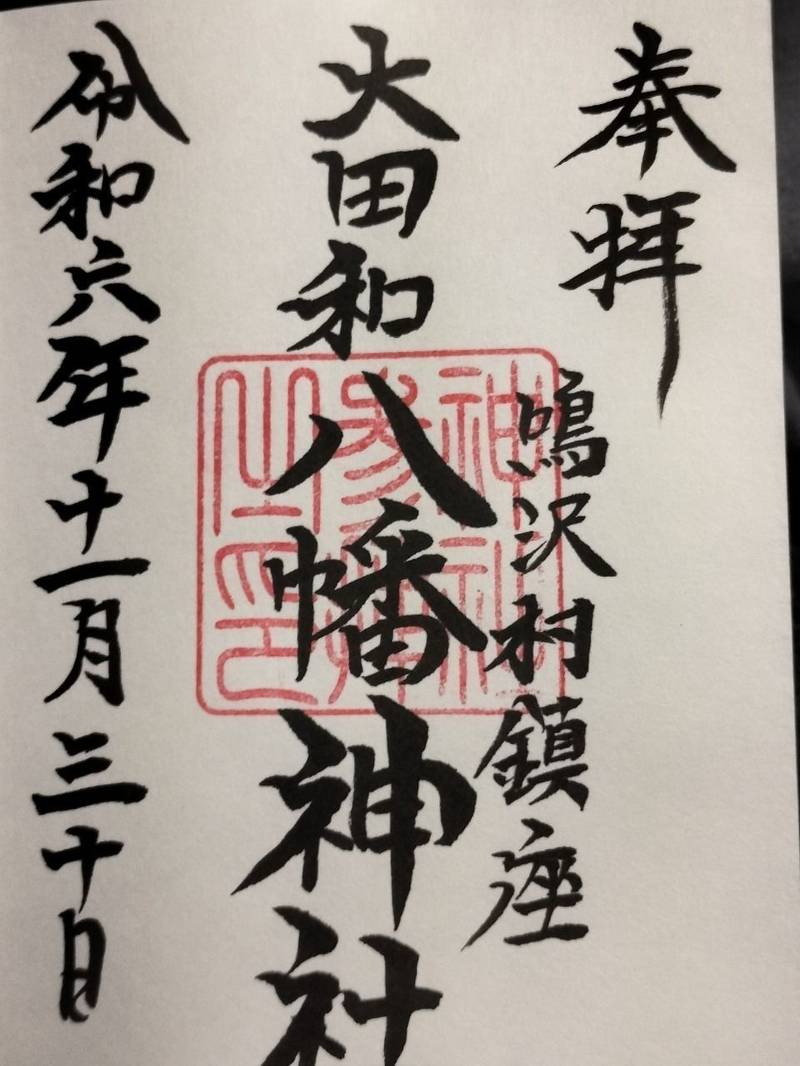 奉拝
鳴沢村鎮座
大田和八幡神社
令和六年十一月三十日
神社
參拜
之印